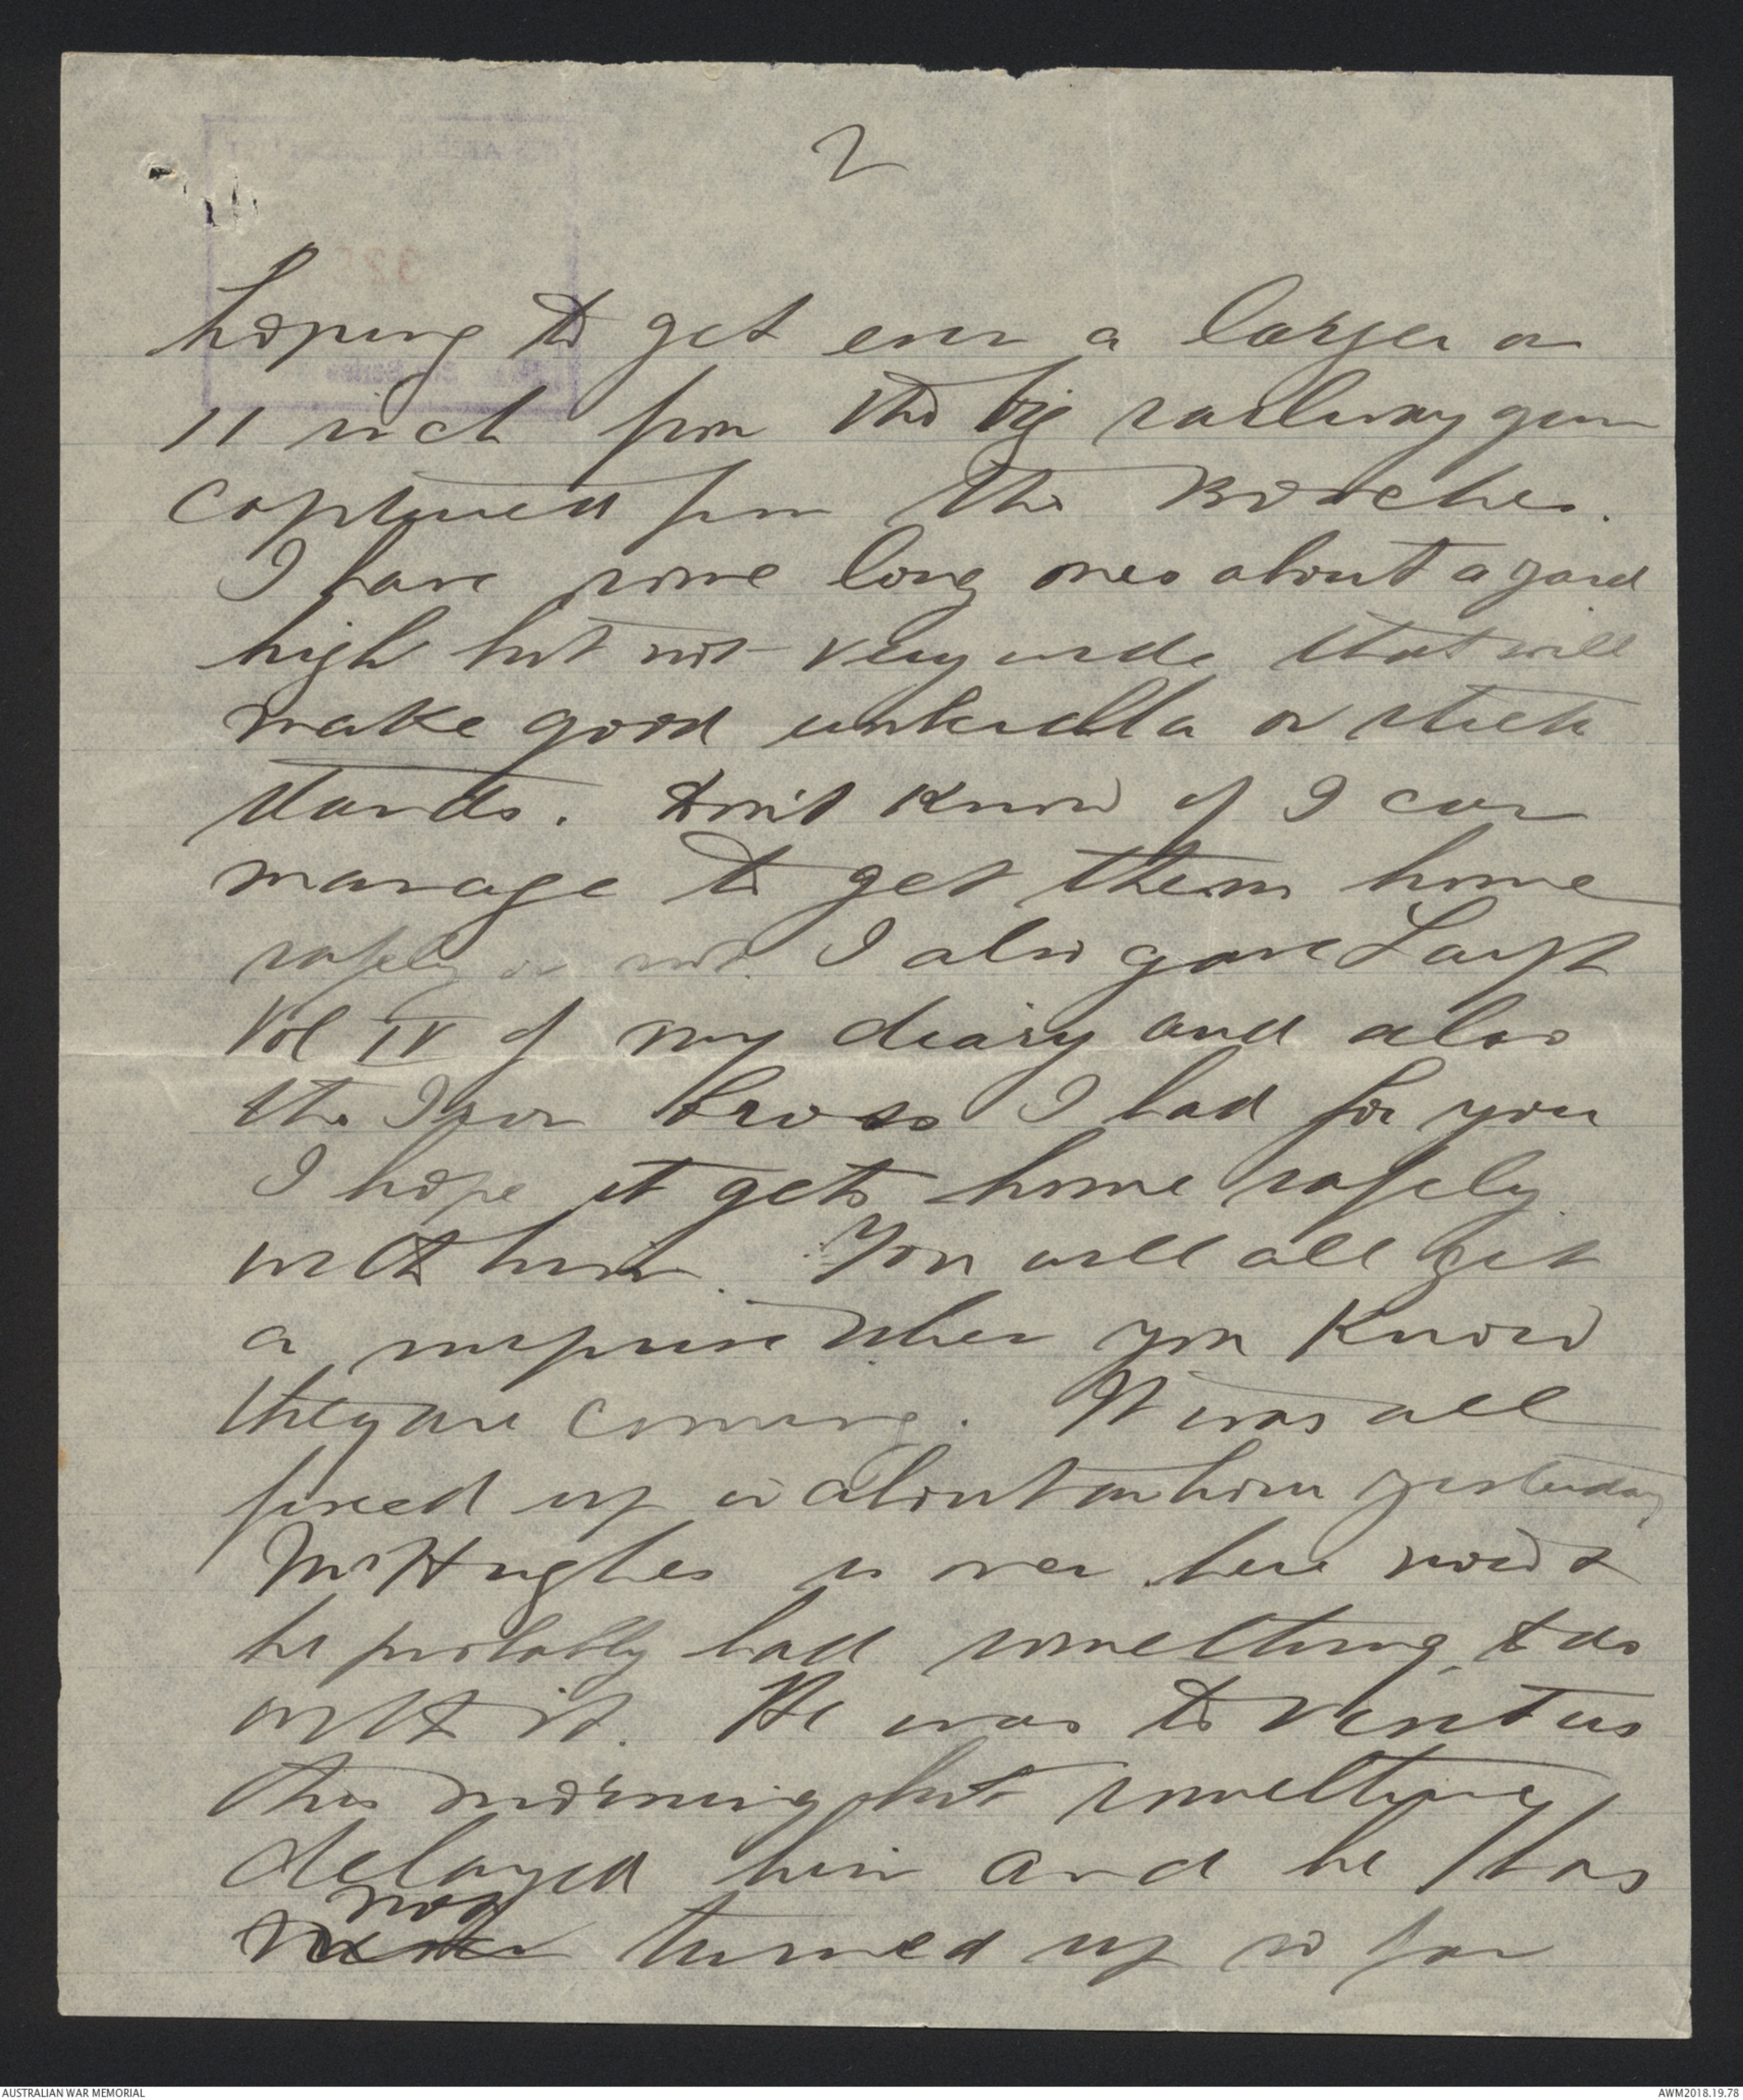 2
hoping to get even a larger one
11 inch from the big railway gun
captured from the Bosches.
I have some long ones about a yard
high but not very wide that will
make good umbrella or stick
stands. Don't know if I can
manage to get them home
safely or not. I also gave
Vol IV of my diary and also
the Iron Cross I had for you
I hope it gets home safely
with him. You will all get
a surprise when you know
they are coming. It was all
fixed up in about an hour yesterday
Mr Hughes is over here now &
he probably had something to do
with it. He was to visit us
this morning but something
delayed him and he has
not
turned up so far
AUSTRALIAN WAR MEMORIAL
AWM2018.19.78